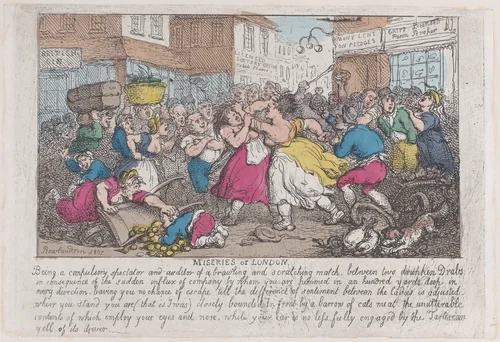 MONEY LENT
ON PLEDGES
Pawn Broker
Rowlandson 1807
MISERIES OF LONDON.
Being a compulsory spectator and auditor of a brawling and scratching match, between two drunken Drabs,
in consequence of the sudden influx of company by whom you are hemmed in an hundred yards deep in
every direction, leaving you no chance of escape till the difference of sentiment between the ladies is adjusted.
where you stand you are (that is I was) closely bounded in front by a barrow of cats meat, the unutterable
contents of which employ your eyes and nose, while your ear is no less fully engaged by the Tartarean
yell of its driver